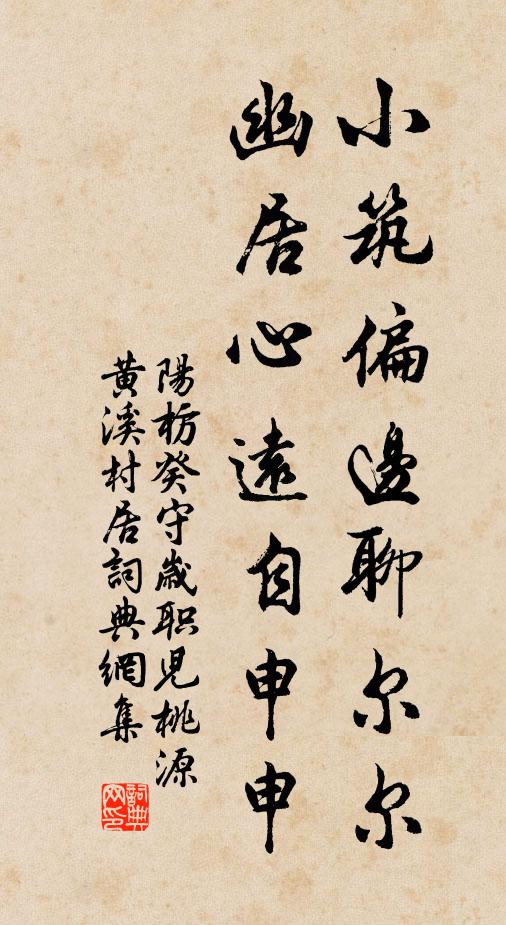 小筑偏邊聊尔尔
幽居心遠自申申
陽枋癸守歲职見桃源
黄溪村居詞典網集
詞典网印